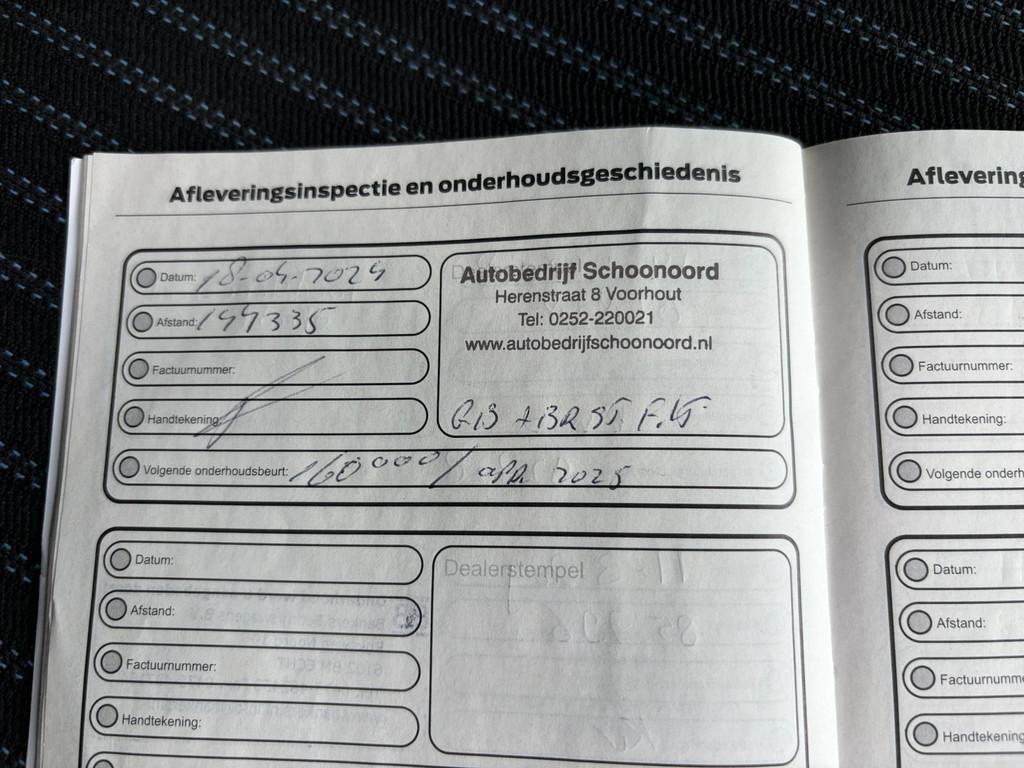 Afleveringsinspectie en onderhoudsgeschiedenis
Datum: 18-04-2024
Afstand: 144335
Factuurnummer:
Handtekening:
Autobedrijf Schoonoord
Herenstraat 8 Voorhout
Tel: 0252-220021
www.autobedrijfschoonoord.nl
Volgende onderhoudsbeurt: 160000/ apr 2025
Datum:
Afstand:
Factuurnummer:
Handtekening:
Dealerstempel
Datum:
Afstand:
Factuurnummer:
Handtekening:
Datum:
Afstand:
Handtekening